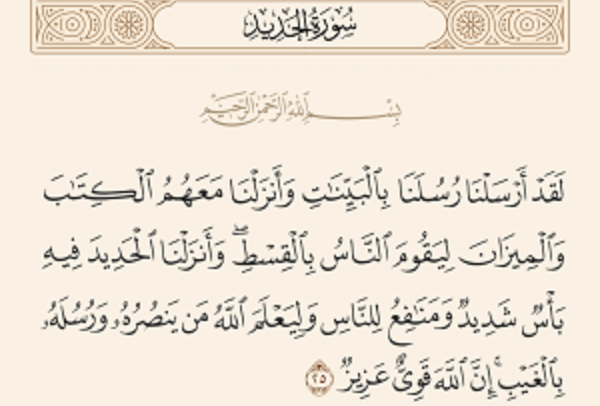 سُورَةُ الحَدِيدِ
بِسْمِ اللَّهِ الرَّحْمَٰنِ الرَّحِيمِ
لَقَدْ أَرْسَلْنَا رُسُلَنَا بِٱلْبَيِّنَٰتِ وَأَنزَلْنَا مَعَهُمُ ٱلْكِتَٰبَ
وَٱلْمِيزَانَ لِيَقُومَ ٱلنَّاسُ بِٱلْقِسْطِۖ وَأَنزَلْنَا ٱلْحَدِيدَ فِيهِ
بَأْسٌ شَدِيدٌ وَمَنَٰفِعُ لِلنَّاسِ وَلِيَعْلَمَ ٱللَّهُ مَن يَنصُرُهُۥ وَرُسُلَهُۥ
بِٱلْغَيْبِۚ إِنَّ ٱللَّهَ قَوِىٌّ عَزِيزٌ ٢٥